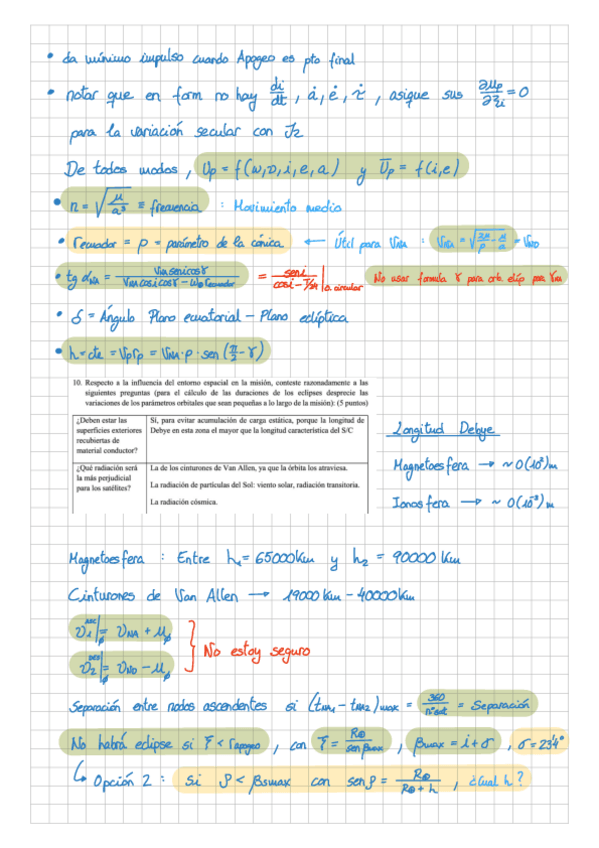 • da mínimo impulso cuando Apogeo es pto final
• notar que en form no hay di/dt, ȧ, ė, i̇, asique sus ∂μp/∂zi = 0
para la variación secular con J2
De todos modos, Up = f(ω,υ,i,e,a) y Ūp = f(i,e)
• n = √(μ/a³) ≡ frecuencia : Movimiento medio
• recuador = p = parámetro de la cónica ← Útil para VNA : VNA = √(2μ/p − μ/a) = VND
• tg αNA = VNA seni cosγ / VNA cosi cosγ − ω⊕ recuador = seni / cosi − 7/24 |o. circular No usar formula γ para orb. elíp para γNA
• δ = Ángulo Plano ecuatorial – Plano eclíptica
• h = cte = Vp rp = VNA · p · sen (π/2 − γ)
10. Respecto a la influencia del entorno espacial en la misión, conteste razonadamente a las
siguientes preguntas (para el cálculo de las duraciones de los eclipses desprecie las
variaciones de los parámetros orbitales que sean pequeñas a lo largo de la misión): (5 puntos)
¿Deben estar las superficies exteriores recubiertas de material conductor?
Si, para evitar acumulación de carga estática, porque la longitud de
Debye en esta zona el mayor que la longitud característica del S/C
¿Qué radiación será la más perjudicial para los satélites?
La de los cinturones de Van Allen, ya que la órbita los atraviesa.
La radiación de partículas del Sol: viento solar, radiación transitoria.
La radiación cósmica.
Longitud Debye
Magnetoesfera → ~ O(10²)m
Ionosfera → ~ O(10⁻³)m
Magnetoesfera : Entre h1 = 65000Km y h2 = 90000 Km
Cinturones de Van Allen → 19000 Km – 40000Km
υ1^ASC|ϕ = υNA + μϕ
υ2^DES|ϕ = υND − μϕ
No estoy seguro
Separación entre nodos ascendentes si (tNA1 − tNA2)max = 360/nºsat = Separación
No habrá eclipse si r̄ < rapogeo, con r̄ = R⊕/sen βmax, βmax = i + σ, σ = 23'4°
↳ Opción 2 : Si ρ < βsmax con senρ = R⊕/R⊕ + h, ¿Cual h?